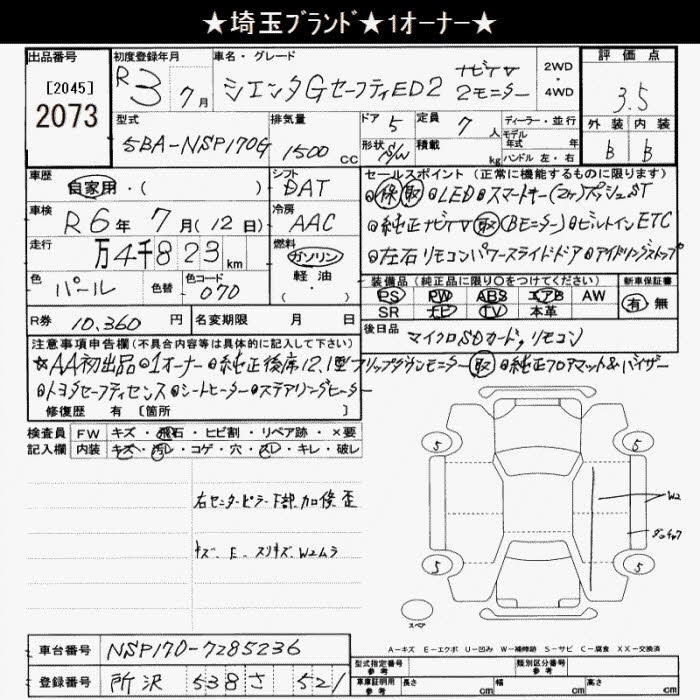 ★埼玉ブランド★1オーナー★
出品番号 初度登録年月 車名・グレード 評価点
[2045] R3年 7月 シエンタGセーフティED2 ナビTV 2モニター 2WD・4WD 3.5
2073
型式 排気量 ドア 5 定員 7人 ディーラー・並行 外装 内装
5BA-NSP170G 1500cc 形状 S/W 積載 kg モデル年式 年 ハンドル 左・右 B B
車歴 自家用・( ) シフト DAT セールスポイント(正常に機能するものに限ります)
●保 取 ●LED ●スマートキー(2ヶ)プッシュST
車検 R6年 7月(12日) 冷房 AAC ●純正ナビTV 取 (Bモニター) ●ビルトインETC
走行 万4千823km 燃料 ガソリン 軽油・( ) ●左右リモコンパワースライドドア ●アイドリングストップ
色 パール 色替 色コード 070 装備品(純正品に限り○をつけてください) 新車保証書
PS PW ABS エアB AW 有 無
SR ナビ TV 本革
R券 10,360円 名変期限 月 日 後日品 マイクロSDカード,リモコン
注意事項申告欄(不具合内容等は具体的に記入して下さい)
☆AA初出品 ●1オーナー ●純正後席12.1型フリップダウンモニター 取 ●純正フロアマット&バイザー
●トヨタセーフティセンス ●シートヒーター ●ステアリングヒーター
修復歴 有 [箇所 ]
検査員 FW キズ・飛石・ヒビ割・リペア跡・×要
記入欄 内装 キズ・汚レ・コゲ・穴・スレ・キレ・破レ
右センターピラー下部 加修歪
キズ、E、スリキズ、W2ムラ
5 5
W2
5 5
スペア
A-キズ E-エクボ U-凹み W-補修跡 S-サビ C-腐食 XX-交換済
車台番号 NSP170-7285236 型式指定番号 参考 類別区分番号 参考
登録番号 所沢 538 さ 521 車庫証明用 参考 長さ cm 幅 cm 高さ cm